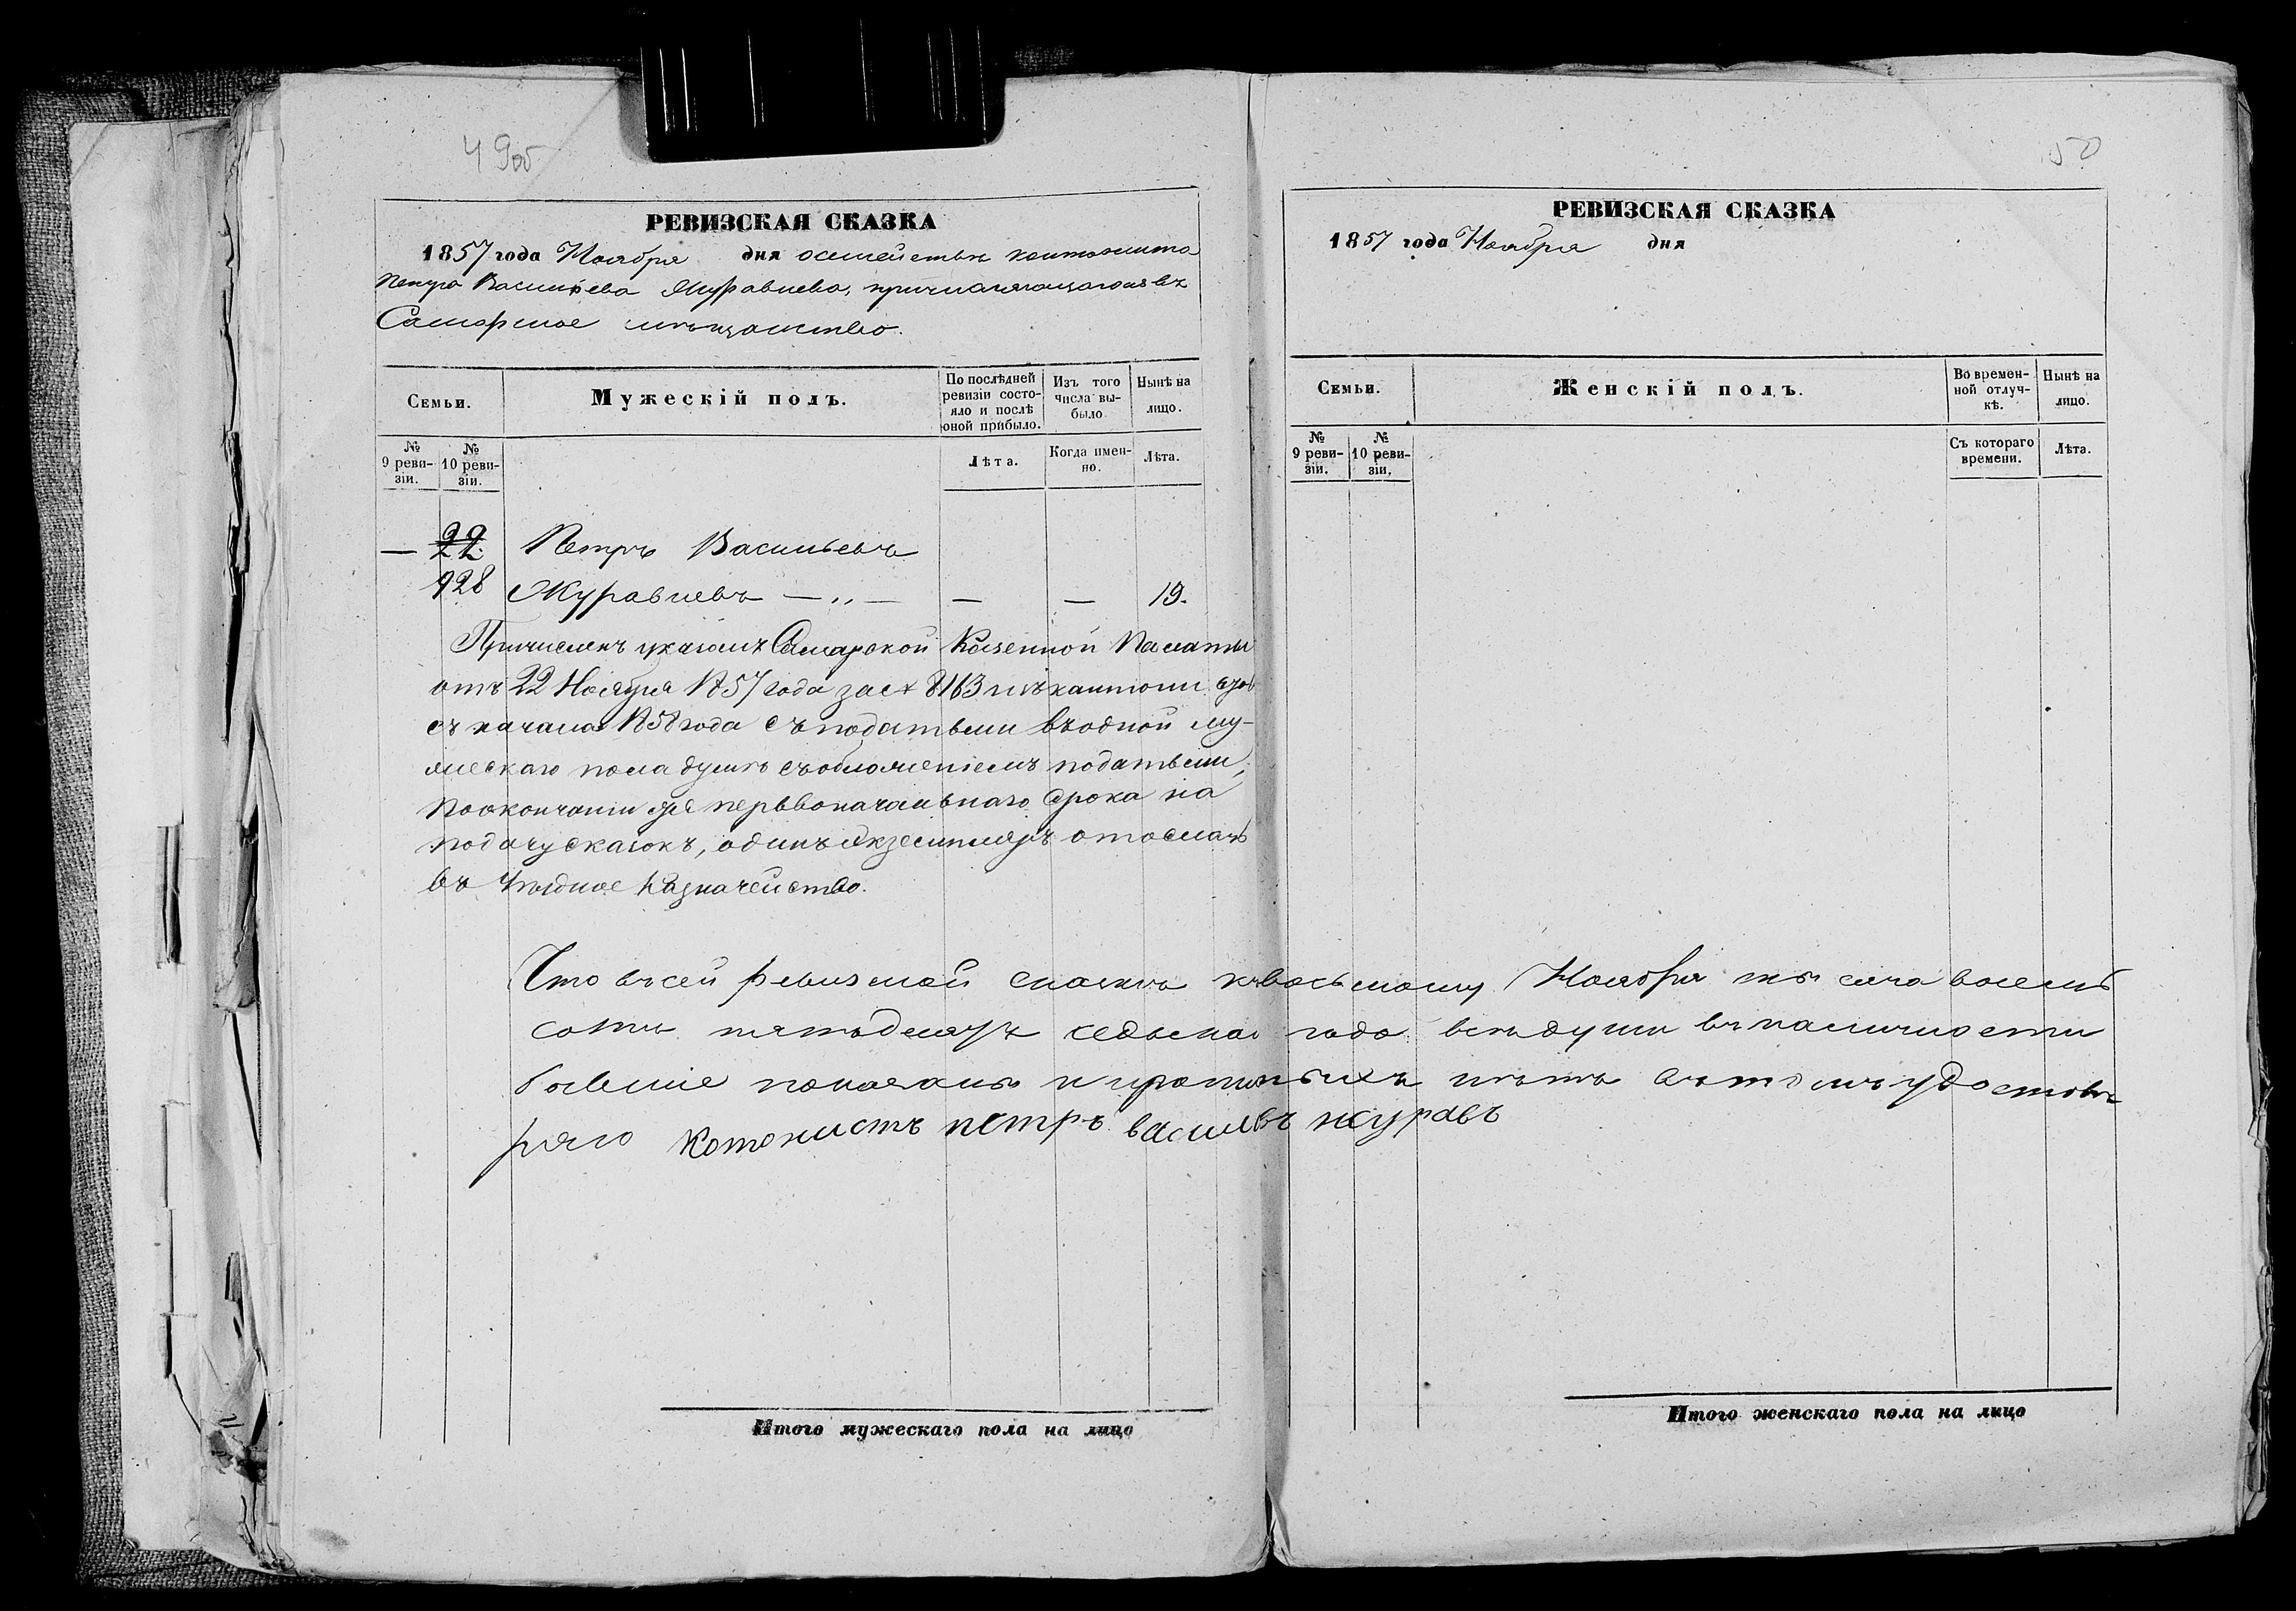 49об
РЕВИЗСКАЯ СКАЗКА
1857 года Ноября дня осемействе кантониста
Петра Васильева Журавлева, причисляющагося въ
Самарское мѣщанство.
Семьи.
Мужескій полъ.
По послѣдней ревизіи состояло и послѣ оной прибыло.
Изъ того числа выбыло
Нынѣ на лицо.
№ 9 ревизіи.
№ 10 ревизіи.
Лѣта.
Когда именно.
Лѣта.
— 22. Петръ Васильевъ
928 Журавлевъ —„— — — 19.
Причисленъ указомъ Самарской Казенной Палаты
отъ 22 Ноября 1857 года за № 8163 изъ кантонистовъ
съ начала 1858 года съ податьми въ одной му-
жескаго пола душѣ съобложеніемъ податьми,
поокончаніи уже первоначальнаго срока на
подачу сказокъ, одинъ экземпляръ отосланъ
въ Уѣздное Казначейство.
Что въсей ревизской сказкѣ къвосьмому Ноября тысяча восемь
сотъ пятьдесятъ седьмаго года всѣ души въналичности
бывшіе показаны и прописныхъ нѣтъ въ томъ удостовѣ
ряю котонистъ петръ василевъ журавъ
Итого мужескаго пола на лицо
50
РЕВИЗСКАЯ СКАЗКА
1857 года Ноября дня
Семьи.
Женскій полъ.
Во временной отлучкѣ.
Нынѣ на лицо.
№ 9 ревизіи.
№ 10 ревизіи.
Съ котораго времени.
Лѣта.
Итого женскаго пола на лицо